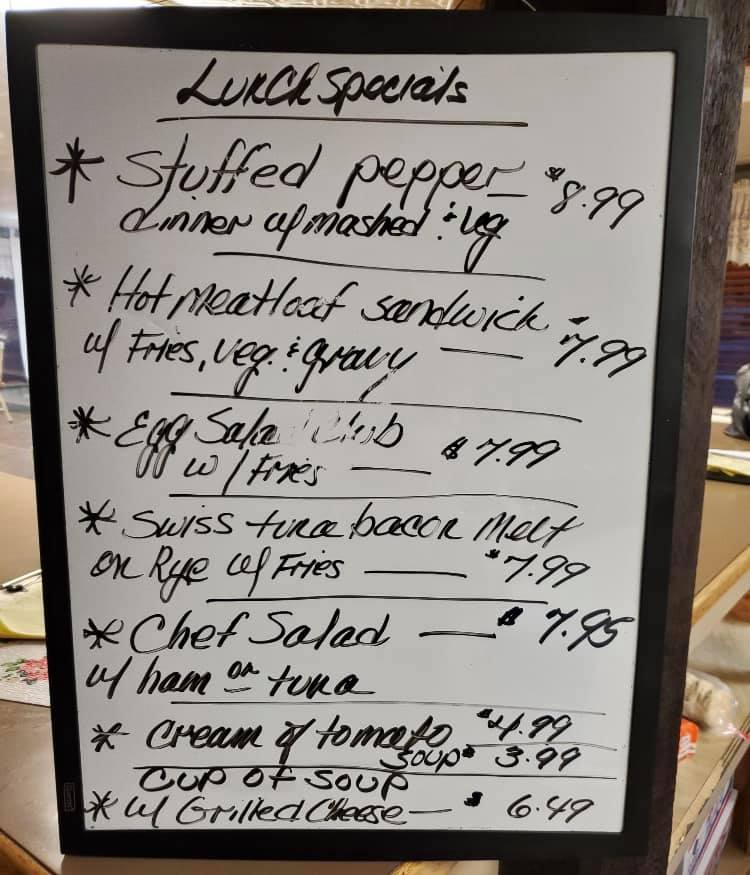 Lunch Specials
* Stuffed pepper $8.99
dinner w/ mashed & veg
* Hot meatloaf sandwick
w/ Fries, veg. & gravy — 7.99
* Egg Salad Club
w/ Fries — $7.99
* Swiss tuna bacon Melt
on Rye w/ Fries — $7.99
* Chef Salad — $7.95
w/ ham or tuna
* Cream of tomato $4.99
soup $3.99
CUP OF SOUP
* w/ Grilled Cheese — $6.49